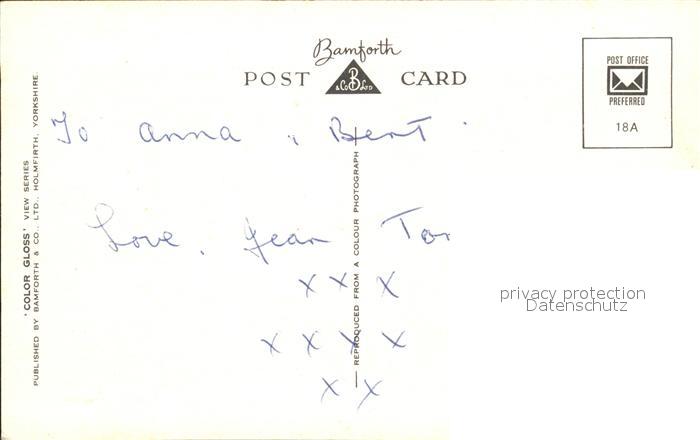 Bamforth
POST CARD
B
& Co LTD
POST OFFICE
PREFERRED
18A
To Anna & Bert
Love, Jean Tor
x x x
x x x x
x x
'COLOR GLOSS' VIEW SERIES
PUBLISHED BY BAMFORTH & CO., LTD., HOLMFIRTH, YORKSHIRE.
REPRODUCED FROM A COLOUR PHOTOGRAPH
privacy protection
Datenschutz